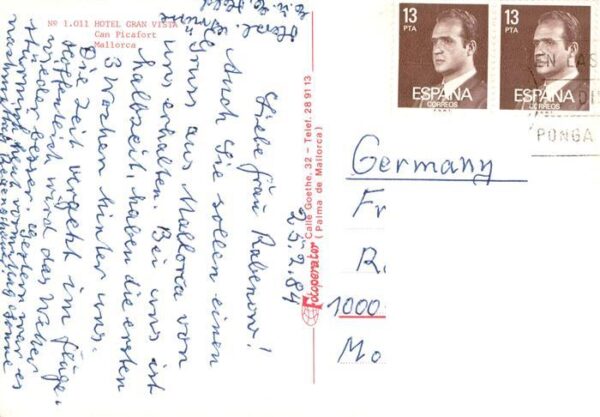 Nº 1.011 HOTEL GRAN VISTA
Can Picafort
Mallorca
25.2.84
Liebe Frau Rabenow!
Auch Sie sollen einen
Gruss aus Mallorca von
uns erhalten. Bei uns ist
Halbzeit, haben die ersten
3 Wochen hinter uns.
Die Zeit vergeht im Fluge.
Hoffentlich wird das Wetter
wieder besser, gestern war es
stürmisch, heut
nachmittag Sonne
Herzl.
Fotoperator Calle Goethe, 32 - Telef. 28 91 13
(Palma de Mallorca)
13
PTA
ESPAÑA
CORREOS
13
PTA
ESPAÑA
CORREOS
EN LAS
DI
PONGA
Germany
Fr
R
1000
Mo